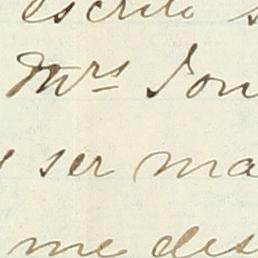 escrito s
Mrs Jon
ser ma
me des